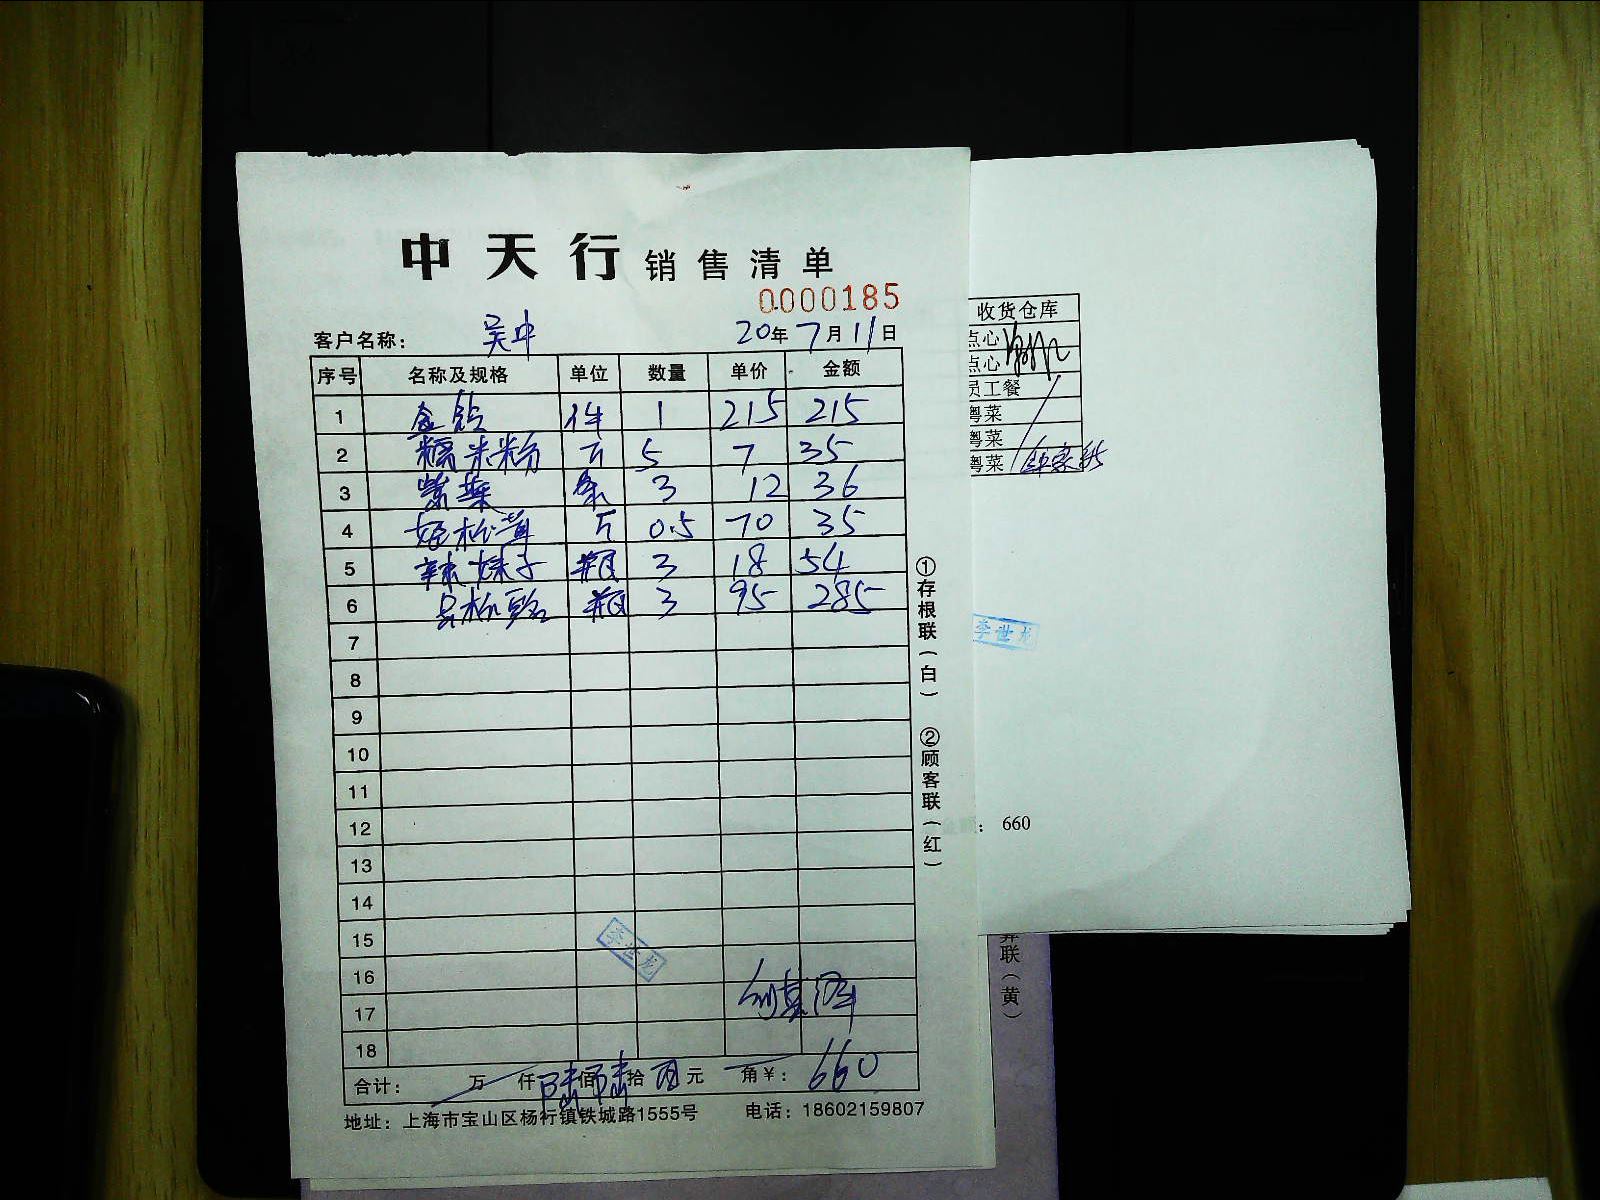 中天行 销售清单
0000185
客户名称： 吴中 20年7月11日
序号 名称及规格 单位 数量 单价 金额
1 金铃 件 1 215 215
2 糯米粉 斤 5 7 35
3 紫菜 条 3 12 36
4 姬松茸 斤 0.5 70 35
5 辣妹子 瓶 3 18 54
6 瓶 3 95 285
7
8
9
10
11
12
13
14
15
16
17
18
李世龙
合计： 万 仟 陆佰 陆拾 元 角 ¥： 660
地址：上海市宝山区杨行镇铁城路1555号 电话：18602159807
①存根联（白） ②顾客联（红）
收货仓库
点心
点心
员工餐
粤菜
粤菜
粤菜
李世龙
：660
联（黄）